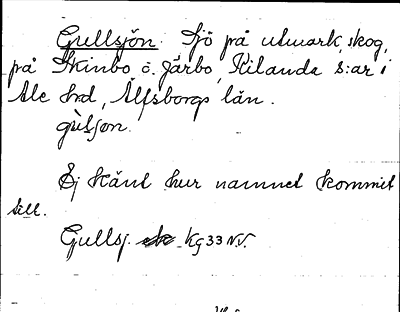 Gullsjön. Sjö på utmark, skog,
på Skinbo o. Järbo, Kilanda s:ar i
Ale hrd, Älfsborgs län.
gùlʃøn.
Ej känt hur namnet kommit
till.
Gullsj. Kg 33 N.V.